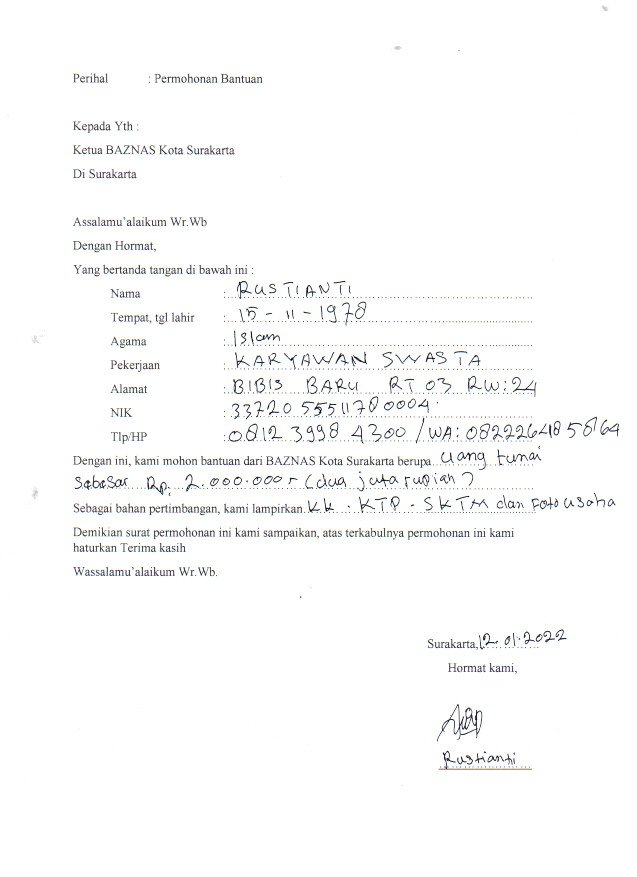 Perihal : Permohonan Bantuan
Kepada Yth :
Ketua BAZNAS Kota Surakarta
Di Surakarta
Assalamu'alaikum Wr.Wb
Dengan Hormat,
Yang bertanda tangan di bawah ini :
Nama : RUSTIANTI
Tempat, tgl lahir : 15 - 11 - 1978
Agama : Islam
Pekerjaan : KARYAWAN SWASTA
Alamat : BIBIS BARU RT 03 RW: 24
NIK : 3372055511780004
Tlp/HP : 0812 3998 4300 / WA: 082226485864
Dengan ini, kami mohon bantuan dari BAZNAS Kota Surakarta berupa uang tunai
Sebesar Rp. 2.000.000,- (dua juta rupiah)
Sebagai bahan pertimbangan, kami lampirkan KK - KTP - SKTM dan Foto usaha
Demikian surat permohonan ini kami sampaikan, atas terkabulnya permohonan ini kami
haturkan Terima kasih
Wassalamu'alaikum Wr.Wb.
Surakarta, 12.01.2022
Hormat kami,
Rustianti